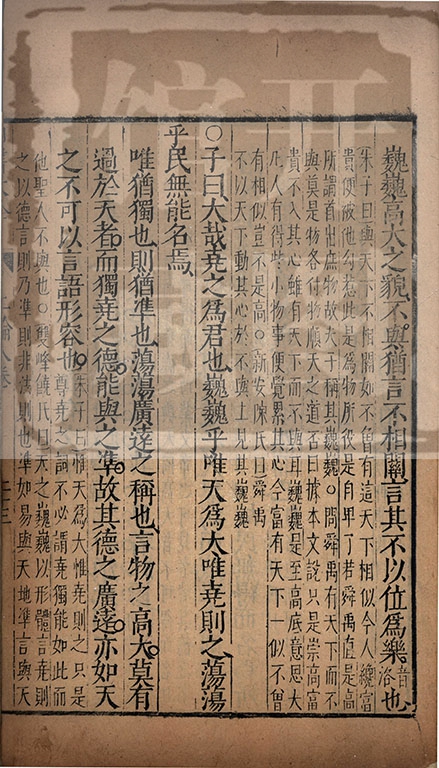 巍巍高大之貌不與猶言不相關言其不以位爲樂音洛也
朱子曰與天下不相關如不曾有這天下相似今人纔富
貴便被他勾惹此是爲物所役是自卑了若舜禹直是高
所謂首出庶物故夫子稱其巍巍○問舜禹有天下而不
與莫是物各付物順天之道否曰據本文說只是崇高富
貴不入其心雖有天下而不與耳巍巍是至高底意思大
凡人有得些小物事便覺累其心今富有天下一似不曾
有相似豈不是高○新安陳氏曰舜禹
不以天下動其心於不與上見其巍巍
○子曰大哉堯之爲君也巍巍乎唯天爲大唯堯則之蕩蕩
乎民無能名焉
唯猶獨也則猶準也蕩蕩廣遠之稱也言物之高大莫有
過於天者而獨堯之德能與之準故其德之廣遠亦如天
之不可以言語形容也朱子曰惟天爲大惟堯則之只是
尊堯之詞不必謂堯獨能如此而
他聖人不與也○雙峰饒氏曰天之巍巍以形體言堯則
之以德言則乃準則非法則也準如易與天地準言與天